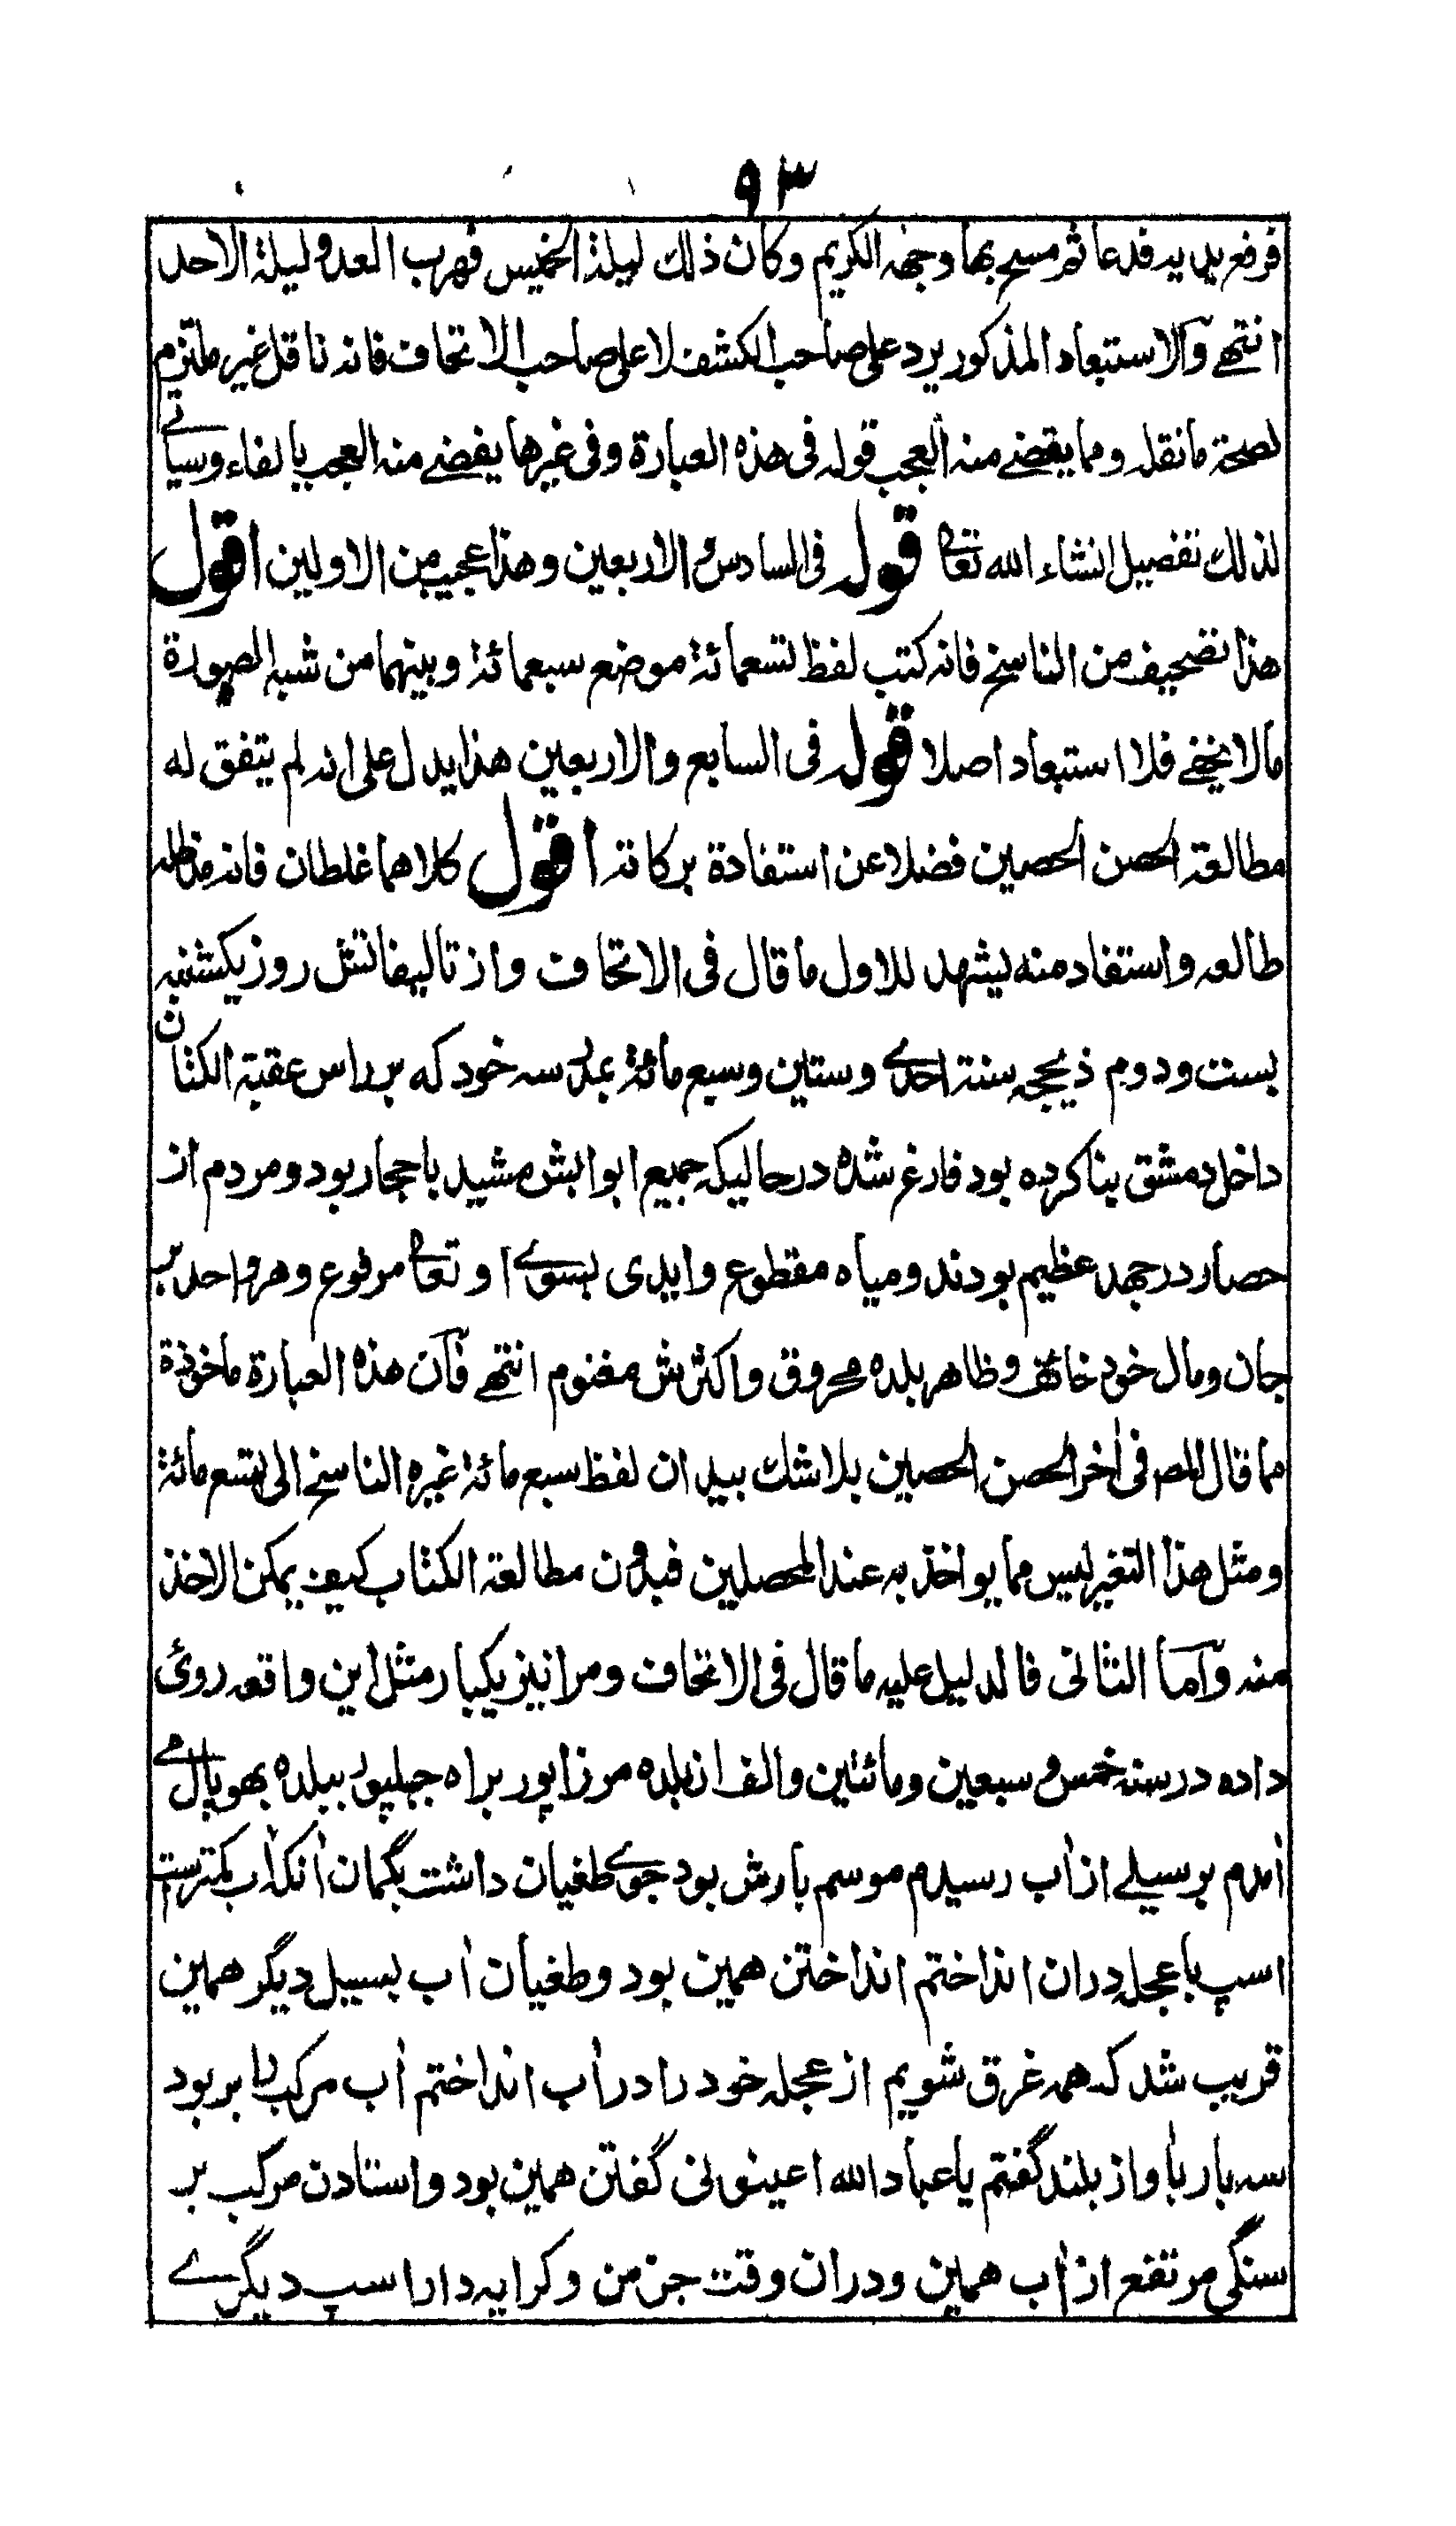 ٩٣
فرفع يديه فدعا ثم مسح بها وجهه الكريم وكان ذلك ليلة الخميس فهرب العدو ليلة الاحد
انتهى وآلاستبعاد المذكور يرد على صاحب الكشف لا على صاحب الاتحاف فانه ناقل غير ملتزم
لصحة ما نقل ومما يقضے منه العجب قوله فى هذه العبارة وفى غيرها يفضے منه العجب بالفاء وسياتے
لذلك تفصيل انشاء الله تعالى قوله فى السادس والاربعين وهذا عجيب من الاولين اقول
هذا تصحيف من الناسخ فانه كتب لفظ تسعمائة موضع سبعمائة وبينهما من شبه الصورة
مالا يخفے فلا استبعاد اصلا قوله فى السابع والاربعين هذا يدل على انه لم يتفق له
مطالعة الحصن الحصين فضلا عن استفادة بركاته اقول كلاهما غلطان فانه مدظله
طالعه واستفاد منه يشهد للاول ما قال فى الاتحاف واز تاليفاتش روز یکشنبه
بست ودوم ذیحجه سنة احدے وستين وسبع مائة بمدرسه خود که بر راس عقبة الكتان
داخل دمشق بنا کرده بود فارغ شده درحالیکه جمیع ابوابش مشید باحجار بود ومردم از
حصار درجهد عظیم بودند ومیاه مقطوع وایدی بسوے او تعالى مرفوع وهر واحد بر
جان ومال خود خائف وظاهر بلده محروق واکثرش مغنوم انتهے فآن هذه العبارة ماخوذة
مما قال المصـ فى أخر الحصن الحصين بلا شك بيد ان لفظ سبع مائة غيره الناسخ الى تسع مائة
ومثل هذا التغير ليس مما يواخذ به عند المحصلين فبدون مطالعة الكتاب كيف يمكن الاخذ
منه وآما الثانى فالدليل عليه ما قال فى الاتحاف ومرا نیز یکبار مثل این واقعه روئ
داده در سنه خمس وسبعين ومائتين والف از بلده مرزاپور براه جبلپور ببلده بهوپال مے
أمدم بر سیلے از أب رسیدم موسم بارش بود جوے طغیان داشت بگمان أنکه أب کمتر است
اسپ با عجله دران انداختم انداختن همین بود وطغیان أب بسبیل دیگر همین
قریب شد که همه غرق شویم از عجله خود را در أب انداختم أب مرکب را بر بود
سه بار بأواز بلند گفتم یا عباد الله اعینونی گفتن همین بود واستادن مرکب بر
سنگی مرتفع از أب همین ودران وقت جز من وکرایه دار اسپ دیگرے